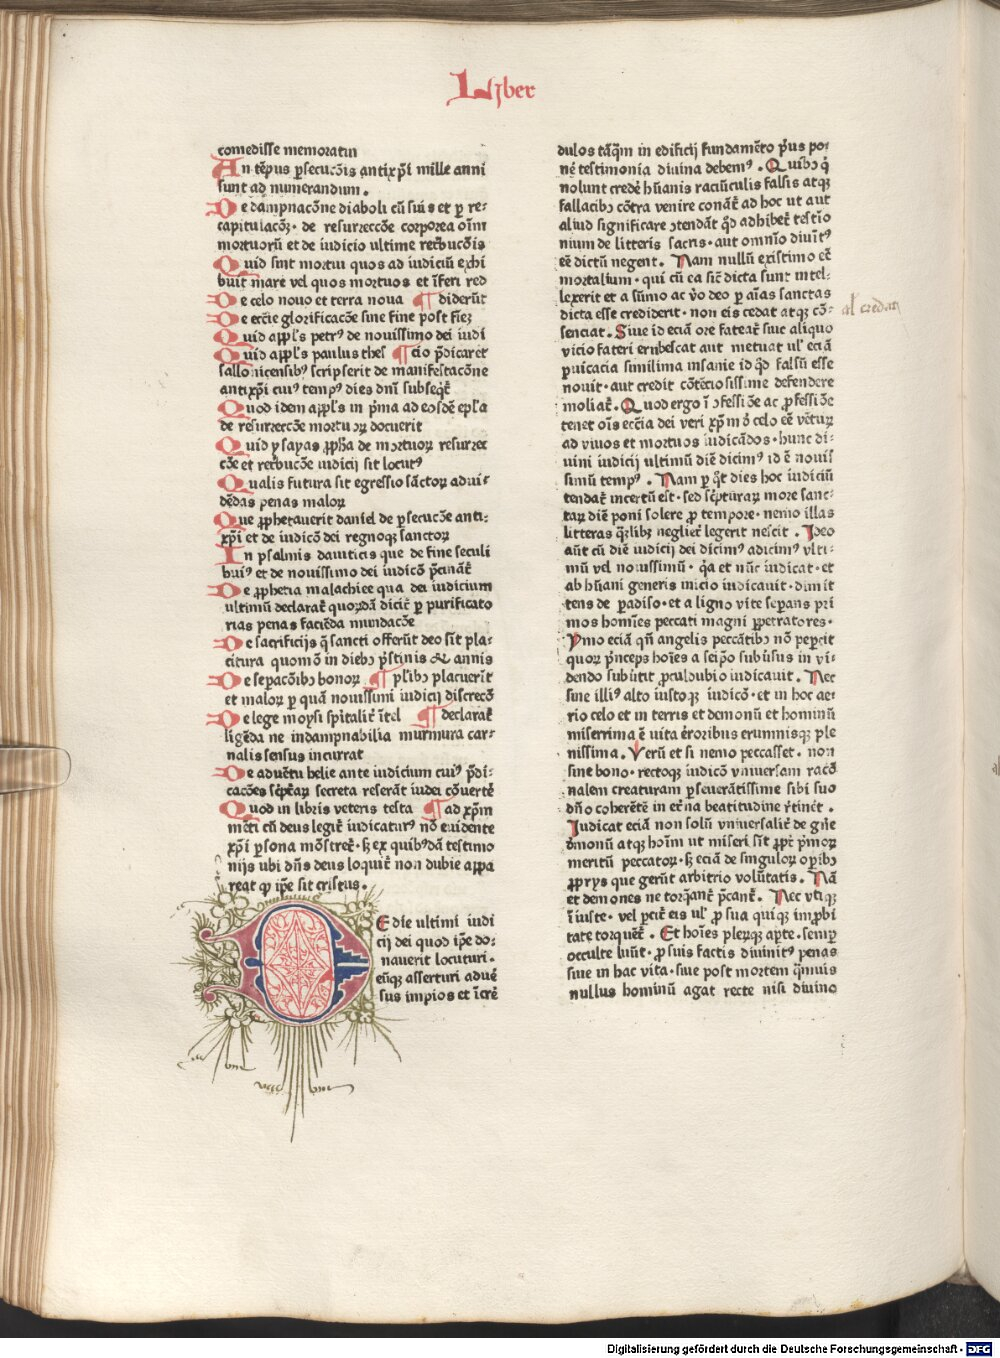 Liber
comedisse memoratur
An tēpus ꝑsecuc̄ois antixp̄i mille anni
sunt ad numerandum .
De dampnac̄one diaboli cū suis et ꝑ re⸗
capitulac̄oꝫ · de resurrecc̄one corporea oīm
mortuorū et de iudicio ultime ret̄buc̄ois
Quid sint mortui quos ad iudiciū exhi
buit mare vel quos mortuos et īferi red
De celo nouo et terra noua ¶ diderūt
De ecc̄ie glorificac̄one sine fine post fīeꝫ
Quid appl̄s petrꝰ de nouissimo dei iudi
Quid appl̄s paulus thes ¶ cio p̄dicaret
sallonicensibꝰ scripserit de manifestac̄one
antixp̄i cuiꝰ tempꝰ dies dn̄i subseqt̄
Quod idem appl̄s in p̄ma ad eosdē ep̄la
de resurrecc̄one mortuoꝝ docuerit
Quid ysayas ꝓph̄a de mortuoꝝ resurrec
c̄oe et ret̄buc̄oe iudicij sit locutꝰ
Qualis futura sit egressio sāctoꝝ ad ui⸗
dēdas penas maloꝝ
Que ꝓphetauerit daniel de ꝑsecuc̄oe anti⸗
xp̄i et de iudic̄o dei regnoqꝫ sanctoꝝ
In psalmis dauiticis que de fine seculi
huiꝰ et de nouissimo dei iudic̄o p̄cināt̄
De ꝓphetia malachiee qua dei iudicium
ultimū declarat̄ quorūdā dicit̄ ꝑ purificato
rias penas faciēda mundac̄oe
De sacrificijs q̄ sancti offerūt deo sīt pla⸗
citura quomō in diebꝫ p̄stinis & annis
De sepac̄oībꝫ bonoꝝ ¶ p̄sibꝫ placuerīt
et maloꝝ ꝑ quā nouissimi iudicij discrec̄o
De lege moysi sp̄italit̄ ītel ¶ declarat̄
ligēda ne indampnabilia murmura car⸗
nalis sensus incurrat
De aduētu helie ante iudicium cuiꝰ p̄di⸗
cac̄oes sc̄ptaꝝ secreta reserāt iudei cōuertē
Quod in libris veteris testa ¶ ad xp̄m
mēti cū deus legit̄ iudicaturꝰ nō euidente
xp̄i ꝑsona mōstret̄ · sꝫ ex quibꝰdā testimo
nijs ubi dn̄s deus loquit̄ non dubie appa
reat ꝙ ip̄e sit cristus .
DE die ultimi iudi
cij dei quod ip̄e do⸗
nauerit locuturi ·
eūqꝫ asserturi aduē
sus impios et īcrē
dulos tāq̄m in edificij fundamēto p̄us po⸗
nē testimonia diuina debemꝰ . Quibꝫ q̄
nolunt credē hūanis raciūculis falsis atqꝫ
fallacibꝫ cōtra venire conāt̄ ad hoc ut aut
aliud significare ꝯtendāt q̄d adhibet̄ testīo
nium de litteris sacris · aut omnīo diuītꝰ
eē dictū negent . Nam nullū existimo eē
mortalium · qui cū ea sic̄ dicta sunt intel⸗
lexerit et a sūmo ac v̄o deo ꝑ aīas sanctas
dicta esse crediderit · non eis cedat atqꝫ cō⸗
al̄ credan
senciat . Siue id eciā ore fateat̄ siue aliquo
vicio fateri erubescat aut metuat ul̄ eciā
ꝑuicacia similima insanie id q̄d falsū esse
nouit · aut credit cōtēciosissime defendere
moliat̄ . Quod ergo ī ꝯfessiōe ac ꝓfessiōe
tenet oīs ecc̄ia dei veri xp̄m d̄ celo eē vētuꝝ
ad viuos et mortuos iudicādos · hunc di⸗
uini iudicij ultimū diē dicimꝰ id ē nouis
simū tempꝰ . Nam ꝑ q̄t dies hoc iudiciū
tendat̄ incertū est · sed sc̄pturaꝝ more sanc⸗
taꝝ diē poni solere ꝓ tempore · nemo illas
litteras q̄ꝫlibꝫ negliēt̄ legerit nescit . Ideo
aūt cū diē iudicij dei dicimꝰ adicimꝰ vlti⸗
mū vel nouissimū · q̄a et nūc iudicat · et
ab hūani generis inicio iudicauit · dimit
tens de ꝑadiso · et a ligno vite seꝑans pri
mos homīes peccati magni ꝑpetratores ·
Ymo eciā qn̄ angelis peccātibꝫ nō peꝑcit
quoꝝ p̄nceps hoīes a seip̄o subūsus in vi⸗
dendo subūtit ꝓculdubio iudicauit . Nec
sine illiꝰ alto iustoqꝫ iudic̄o · et in hoc ae⸗
rio celo et in terris et demonū et hominū
miserrima ē uita ērroribus erumnisqꝫ ple
nissima . Verū et si nemo peccasset · non
sine bono · rectoqꝫ iudic̄o vniuersam rac̄o
nalem creaturam ꝑseuerātissime sibi suo
dn̄o coherētē in et̄na beatitudine r̄tinēt̄ .
Iudicat eciā non solū vniuersalit̄ de gn̄e
d̄monū atqꝫ hoīm ut miseri sīt ꝓpt̄ p̄moꝝ
meritū peccatoꝝ · sꝫ eciā de singuloꝝ oꝑibꝫ
ꝓprys que gerūt arbitrio volūtatis . Nā
et demones ne torq̄ant̄ p̄cant̄ . Nec vtiqꝫ
īiuste · vel ꝑcit̄ eis ul̄ ꝓ sua quiqꝫ imꝓbi
tate torquēt̄ . Et hoīes pleꝝqꝫ aꝑte · semꝑ
occulte luūt · ꝓ suis factis diuinitꝰ penas
siue in hac vita · siue post mortem q̄muis
nullus hominū agat recte nisi diuino
Digitalisierung gefördert durch die Deutsche Forschungsgemeinschaft · DFG